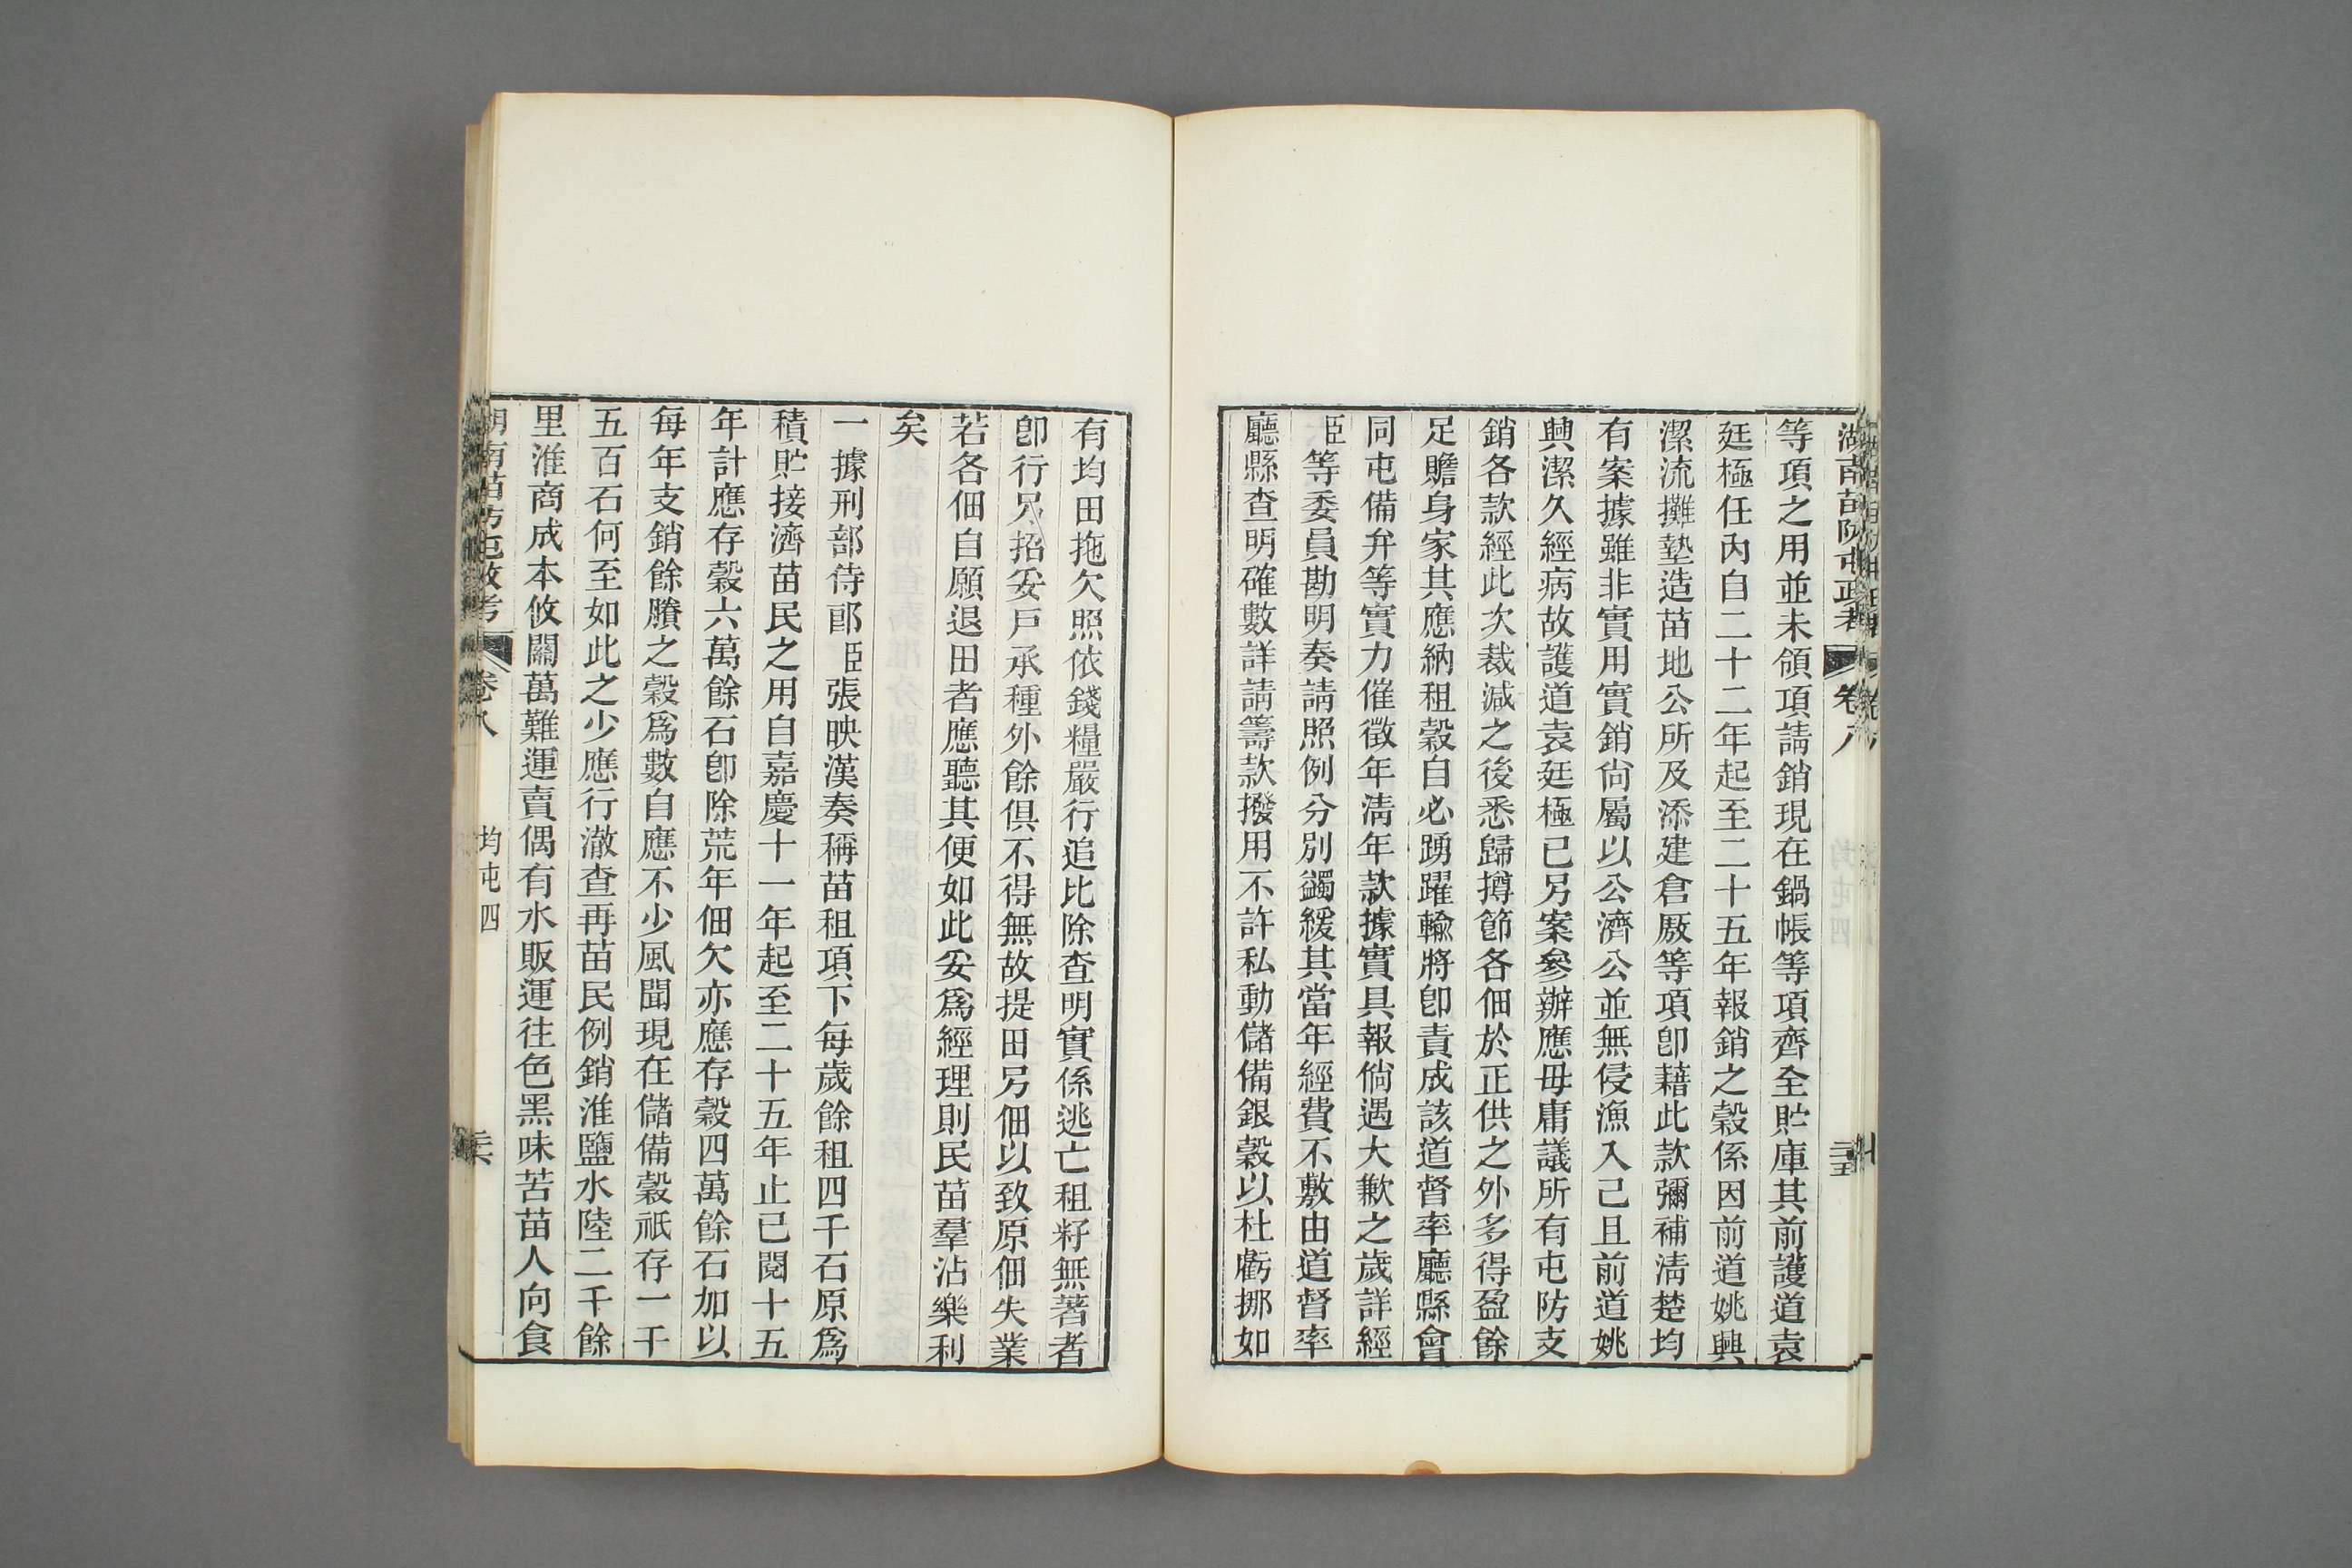 湖南苗防屯政考 卷八 二十五
等項之用並未領項請銷現在鍋帳等項齊全貯庫其前護道袁
廷極任內自二十二年起至二十五年報銷之穀係因前道姚興
潔流攤墊造苗地公所及添建倉厫等項卽藉此款彌補淸楚均
有案據雖非實用實銷尙屬以公濟公並無侵漁入己且前道姚
興潔久經病故護道袁廷極已另案參辦應毋庸議所有屯防支
銷各款經此次裁減之後悉歸撙節各佃於正供之外多得盈餘
足贍身家其應納租穀自必踴躍輸將卽責成該道督率廳縣會
同屯備弁等實力催徵年淸年款據實具報倘遇大歉之歲詳經
臣等委員勘明奏請照例分別蠲緩其當年經費不敷由道督率
廳縣查明確數詳請籌款撥用不許私動儲備銀穀以杜虧挪如
有均田拖欠照依錢糧嚴行追比除查明實係逃亡租籽無著者
卽行另招妥戶承種外餘俱不得無故提田另佃以致原佃失業
若各佃自願退田者應聽其便如此妥爲經理則民苗羣沾樂利
矣
一據刑部侍郎臣張映漢奏稱苗租項下每歲餘租四千石原爲
積貯接濟苗民之用自嘉慶十一年起至二十五年止已閱十五
年計應存穀六萬餘石卽除荒年佃欠亦應存穀四萬餘石加以
每年支銷餘賸之穀爲數自應不少風聞現在儲備穀祇存一千
五百石何至如此之少應行澈查再苗民例銷淮鹽水陸二千餘
里淮商成本攸關萬難運賣偶有水販運往色黑味苦苗人向食
湖南苗防屯政考 卷八 均屯四 二十六